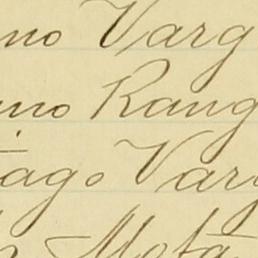 no Varg
no Rang
iago Varg
Mota